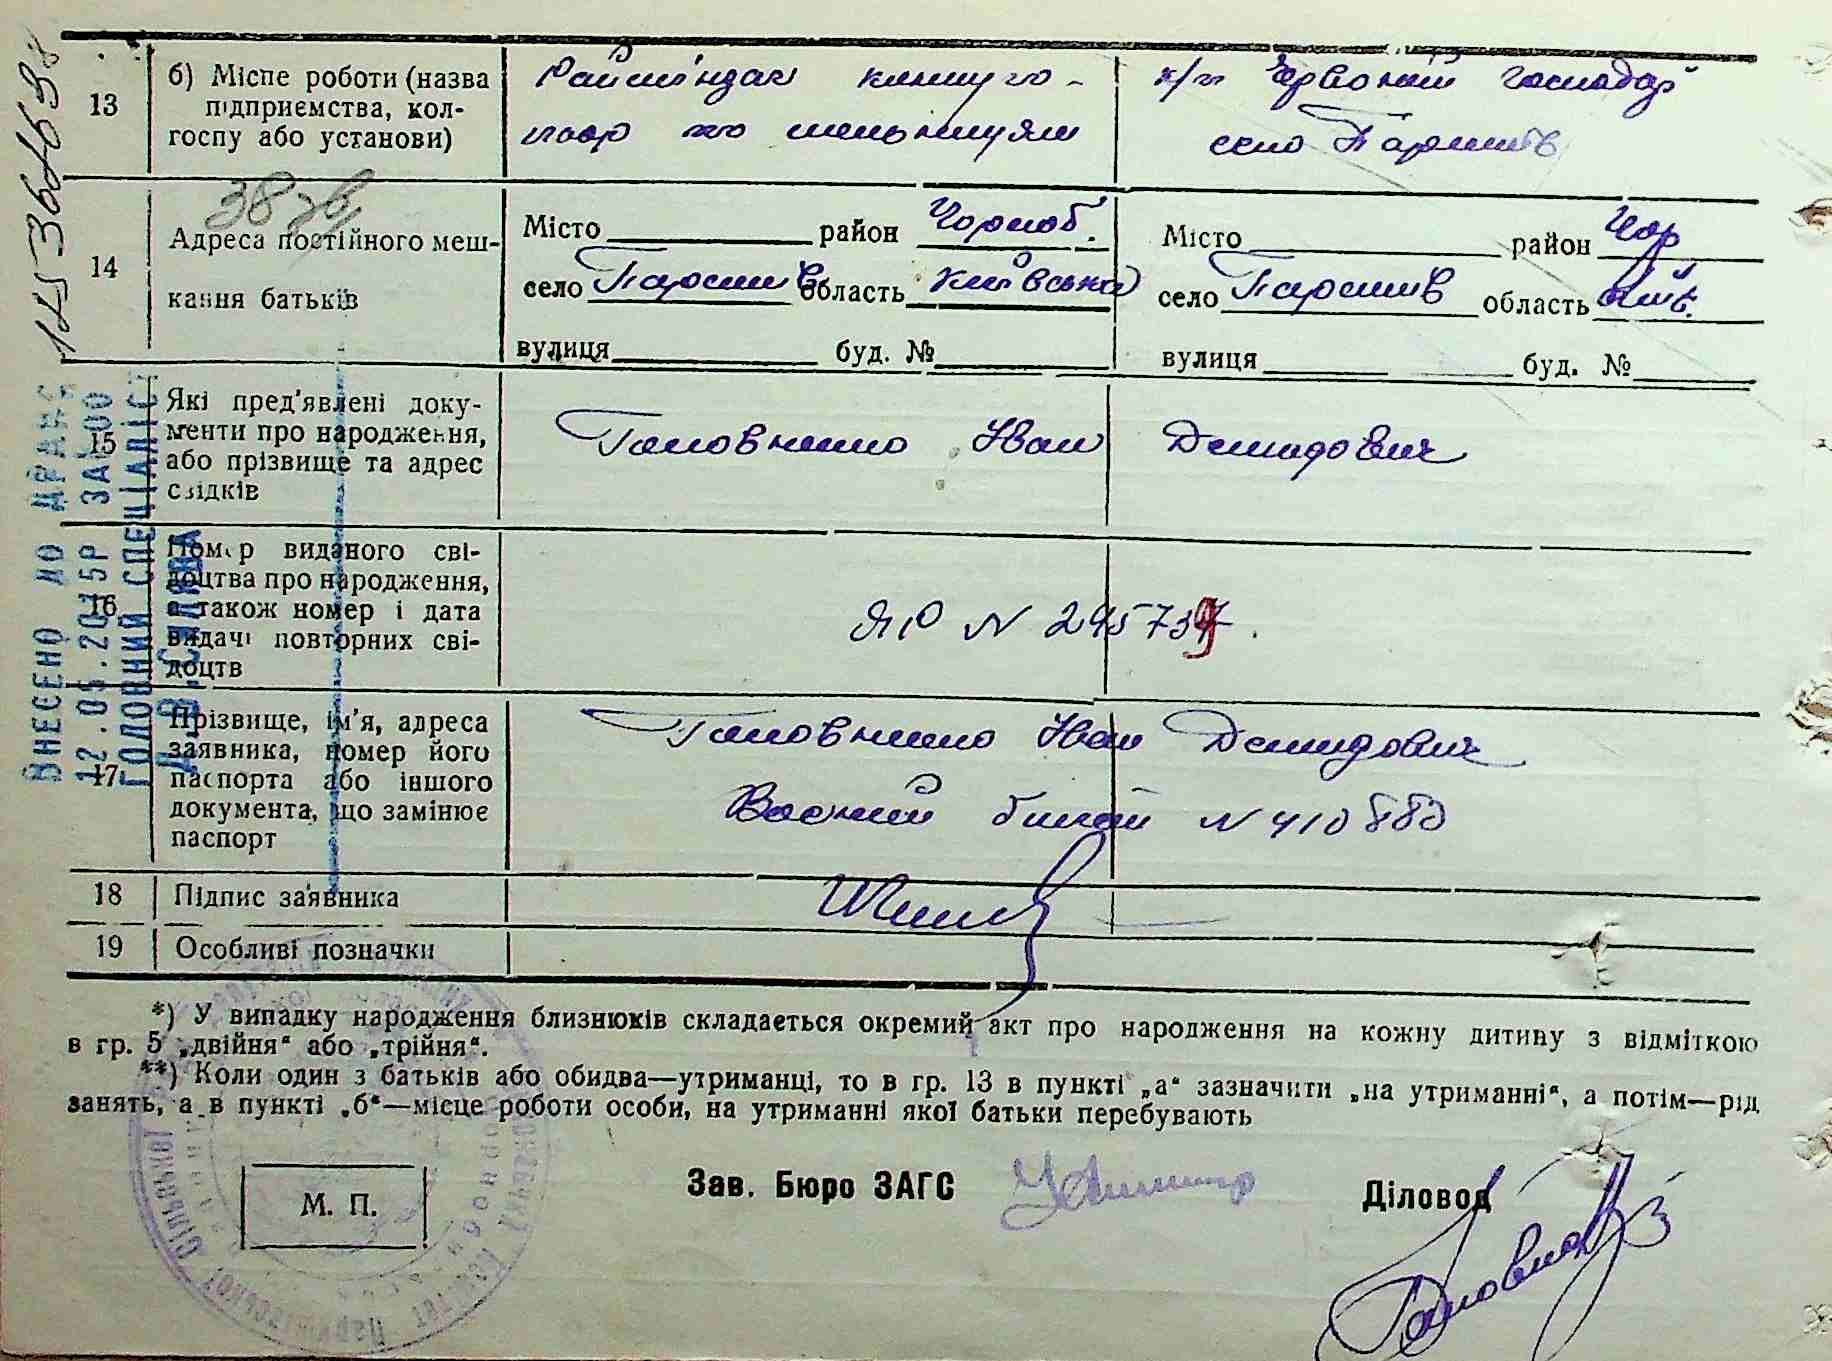 13
б) Місце роботи (назва
підприємства, кол-
госпу або установи)
к/г Червоний господар
село Паришів
14
Адреса постійного меш-
кання батьків
Місто район Чорноб.
село Паришів область Київська
вулиця буд. №
Місто район Чор
село Паришів область Київ.
вулиця буд. №
15
Які пред'явлені доку-
менти про народження,
або прізвище та адрес
свідків
Головненко Іван Демидович
16
Номер виданого сві-
доцтва про народження,
а також номер і дата
видачі повторних сві-
доцтв
ЯЮ N
17
Прізвище, ім'я, адреса
заявника, номер його
паспорта або іншого
документа, що замінює
паспорт
Головненко Іван Демидович
Воєний білет N 410880
18
Підпис заявника
19
Особливі позначки
*) У випадку народження близнюків складається окремий акт про народження на кожну дитину з відміткою
в гр. 5 „двійня“ або „трійня“.
**) Коли один з батьків або обидва—утриманці, то в гр. 13 в пункті „а“ зазначити „на утриманні“, а потім—рід
занять, а в пункті „б“—місце роботи особи, на утриманні якої батьки перебувають
М. П.
Зав. Бюро ЗАГС
Діловод
ВНЕСЕНО ДО ДРАЦС
12.05.2015Р ЗА №00
ГОЛОВНИЙ СПЕЦІАЛІСТ